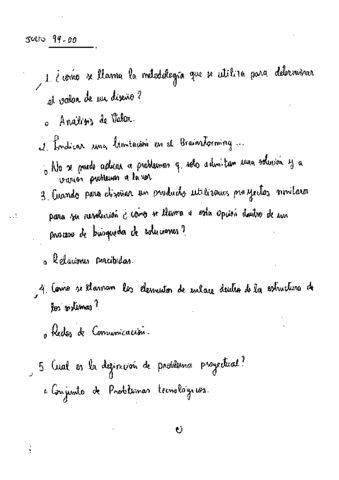 JULIO 99-00
1. ¿Cómo se llama la metodología que se utiliza para determinar
el valor de un diseño?
o Análisis de Valor.
2. Indicar una limitación en el Brainstorming ...
o No se puede aplicar a problemas q. solo admitan una solución y a
varios problemas a la vez.
3. Cuando para diseñar un producto utilizamos proyectos similares
para su resolución ¿cómo se llama a esta opción dentro de un
proceso de búsqueda de soluciones?
o Relaciones percibidas.
4. Como se llaman los elementos de enlace dentro de la estructura de
los sistemas?
o Redes de Comunicación.
5. Cual es la definición de problema proyectual?
o Conjunto de Problemas tecnológicos.